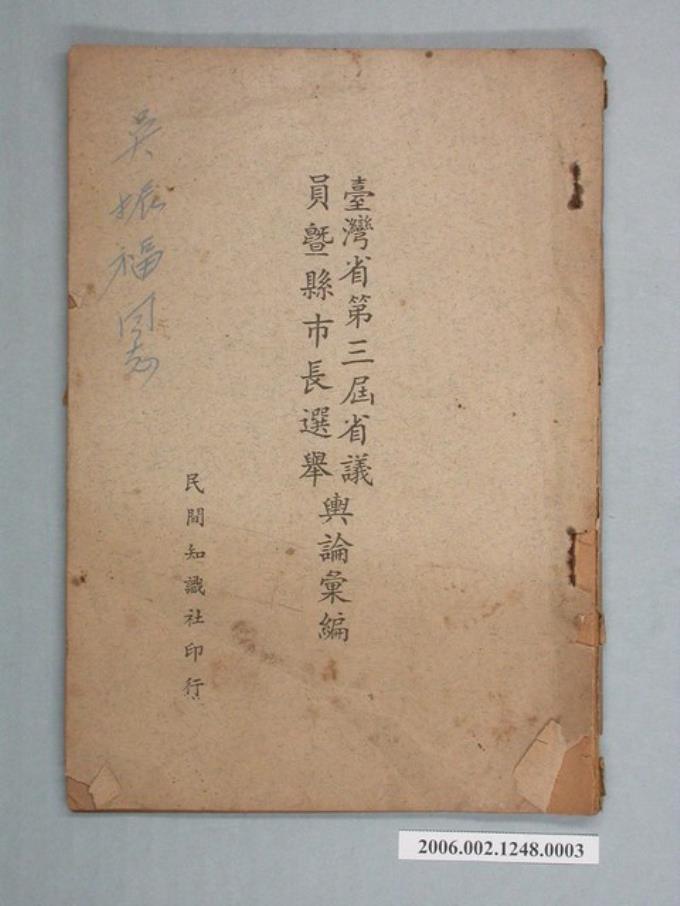 臺灣省第三屆省議
員暨縣市長選舉
輿論彙編
民間知識社印行
吳振福同志
2006.002.1248.0003